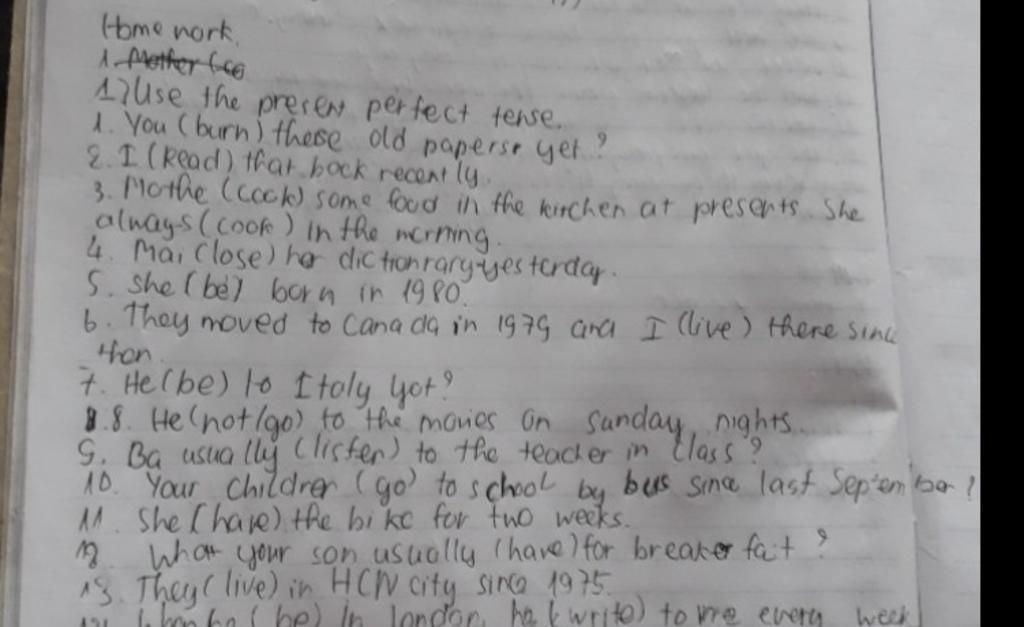 Home work.
1. Mother (co
1) Use the present perfect tense.
1. You (burn) these old papersr yet?
2. I (Read) that book recently.
3. Mothe (cook) some food in the kirchen at presents. She
always (cook) in the morning.
4. Mai (lose) her dictionrary yesterday.
5. She (be) born in 1980.
6. They moved to Canada in 1979 and I (live) there since
then.
7. He (be) to Italy yet?
8. He (not/go) to the movies on Sunday nights.
9. Ba usually (listen) to the teacher in class?
10. Your children (go) to school by bus since last September?
11. She (have) the bike for two weeks.
12. What your son usually (have) for breaker fast?
13. They (live) in HCN city since 1975.
(be) in london, he (write) to me every week